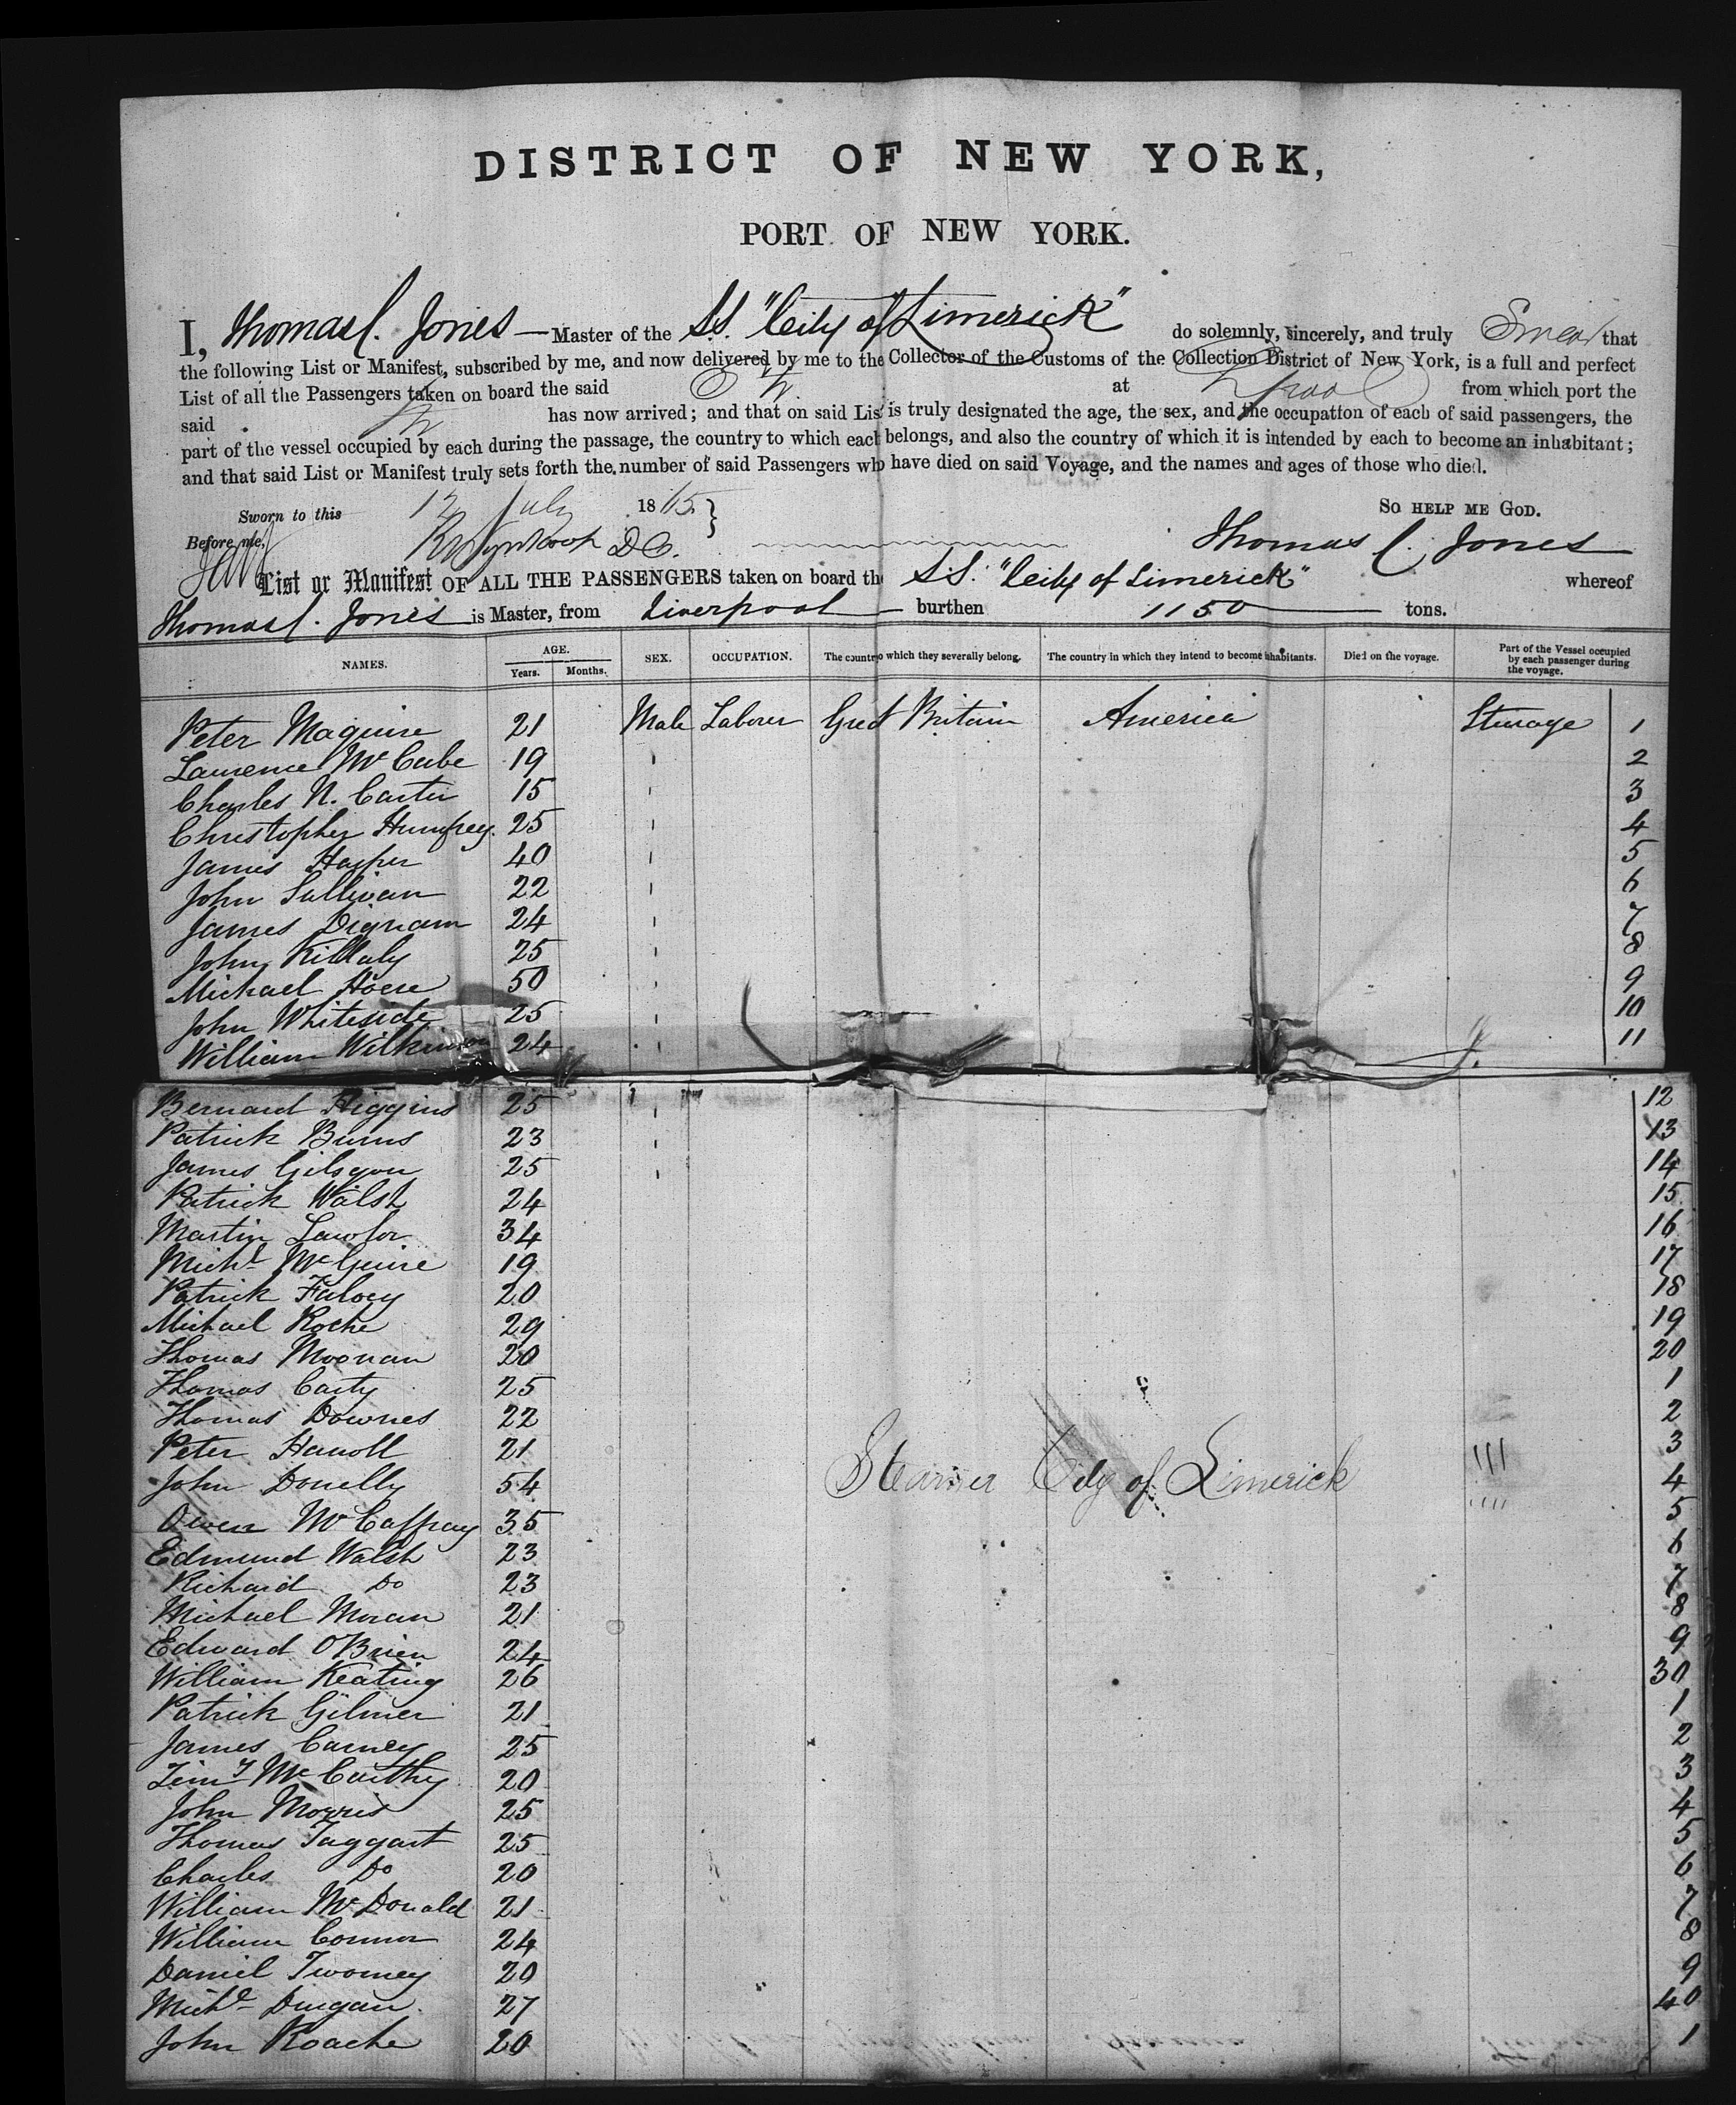 DISTRICT OF NEW YORK,
PORT OF NEW YORK.
I, Thomas C. Jones — Master of the S.S. "City of Limerick" do solemnly, sincerely, and truly Swear that
the following List or Manifest, subscribed by me, and now delivered by me to the Collector of the Customs of the Collection District of New York, is a full and perfect
List of all the Passengers taken on board the said at L'pool from which port the
said has now arrived; and that on said List is truly designated the age, the sex, and the occupation of each of said passengers, the
part of the vessel occupied by each during the passage, the country to which each belongs, and also the country of which it is intended by each to become an inhabitant;
and that said List or Manifest truly sets forth the number of said Passengers who have died on said Voyage, and the names and ages of those who died.
Sworn to this 12 July 1865. So help me God.
Before me, D C. Thomas C. Jones
List or Manifest OF ALL THE PASSENGERS taken on board the S.S. "City of Limerick" whereof
Thomas C. Jones is Master, from Liverpool burthen 1150 tons.
NAMES. AGE. Years. Months. SEX. OCCUPATION. The country to which they severally belong. The country in which they intend to become inhabitants. Died on the voyage. Part of the Vessel occupied by each passenger during the voyage.
Peter Maguire 21 Male Laborer Great Britain America Steerage 1
Laurence McCabe 19 " 2
Charles N. Carter 15 " 3
Christopher Humfrey. 25 " 4
James Harper 40 " 5
John Sullivan 22 " 6
James Dignam 24 " 7
John Killaly 25 " 8
Michael 50 " 9
John Whiteside 25 " 10
William Wilkinson 24 " 11
Bernard Higgins 25 " 12
Patrick Burns 23 " 13
James 25 " 14
Patrick Walsh 24 15
Martin Lawlor 34 16
Michl McGuire 19 17
Patrick Falvey 20 18
Michael Roche 29 19
Thomas Moonan 20 20
Thomas Carty 25 1
Thomas Downes 22 2
Peter 21 3
John Donelly 54 4
Steamer City of Limerick
Owen McCaffray 35 5
Edmund Walsh 23 6
Richard Do 23 7
Michael Moran 21 8
Edward O'Brien 24 9
William Keating 26 30
Patrick Gilmer 21 1
James Carney 25 2
Timy McCarthy 20 3
John Morris 25 4
Thomas Taggart 25 5
Charles Do 20 6
William McDonald 21 7
William Connor 24 8
Daniel Twomey 20 9
Michl Dungan 27 40
John Roache 20 1